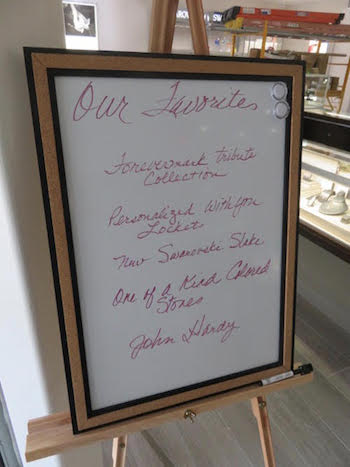 Our Favorites
Forevermark tribute
Collection
Personalized With You
Lockets
New Swarovski Slake
One of a Kind Colored
Stones
John Hardy